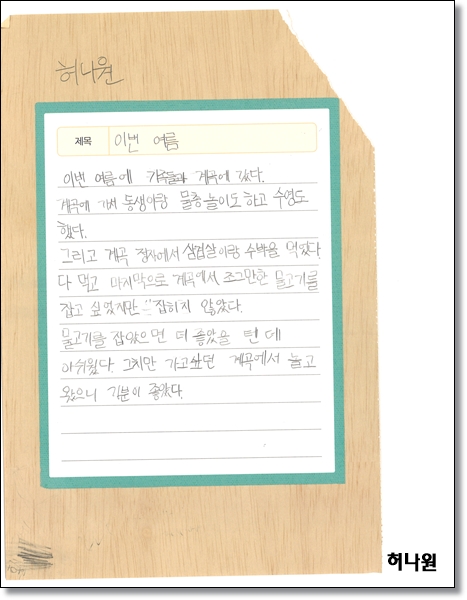 허나원
제목 이번 여름
이번 여름에 가족들과 계곡에 갔다.
계곡에 가서 동생이랑 물총놀이도 하고 수영도
했다.
그리고 계곡 정자에서 삼겹살이랑 수박을 먹었다
다 먹고 마지막으로 계곡에서 조그만한 물고기를
잡고 싶었지만 잡히지 않았다.
물고기를 잡았으면 더 좋았을 텐데
아쉬웠다. 그치만 가고싶던 계곡에서 놀고
왔으니 기분이 좋았다.
허나원